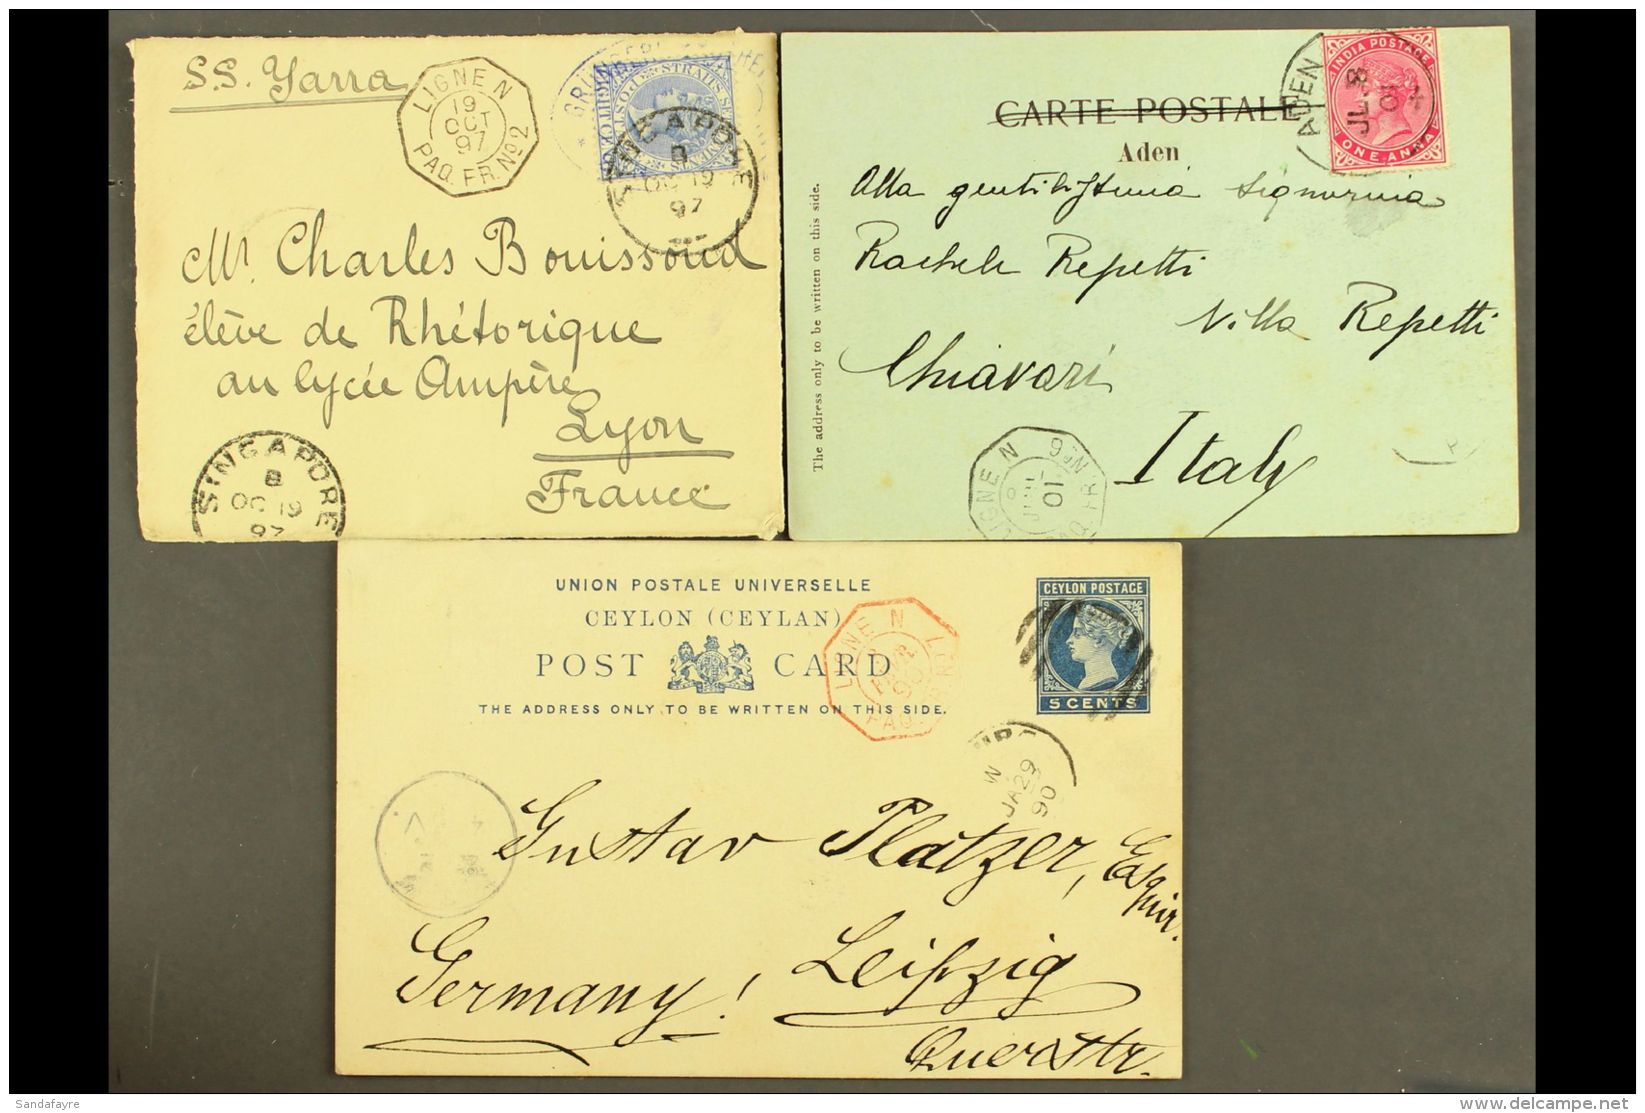 S.S. Yarra
LIGNE N
19
OCT
97
PAQ. FR. No 2
SINGAPORE
B
OC 19
97
Mr. Charles Bouissoud
élève de Rhétorique
au lycée Ampère
Lyon
France
SINGAPORE
B
OC 19
97
INDIA POSTAGE
ONE ANNA
ADEN
JL 8
01
CARTE POSTALE
Aden
The address only to be written on this side.
Alla gentilissima Signorina
Rachele Repetti
Villa Repetti
Chiavari
Italy
LIGNE N
01
PAQ. FR. No 6
UNION POSTALE UNIVERSELLE
CEYLON (CEYLAN)
POST CARD
THE ADDRESS ONLY TO BE WRITTEN ON THIS SIDE.
CEYLON POSTAGE
5 CENTS
LIGNE N
90
PAQ.
M
JA 29
90
Gustav Platzer, Esquir.
Leipzig
Germany!
Querstr.
Sandafayre
delcampe.net